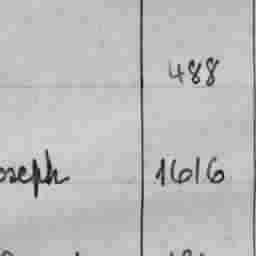 488
oseph 1616